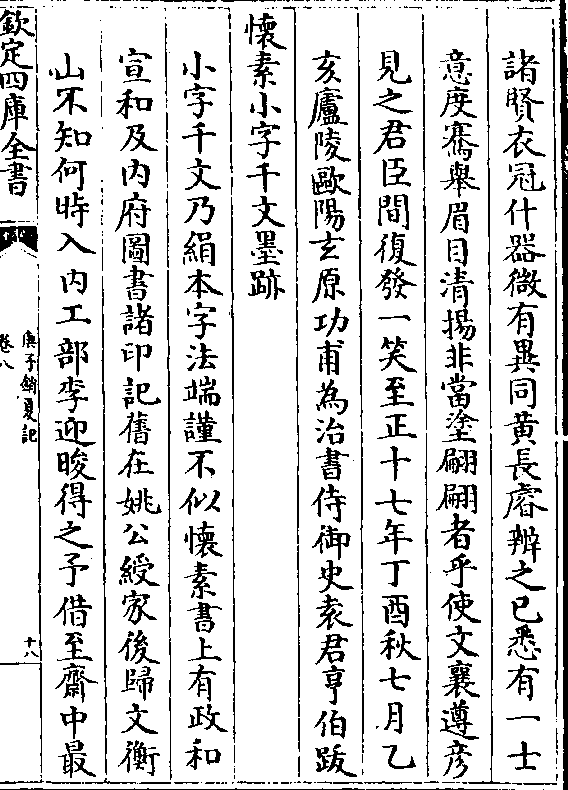 諸賢衣冠什器微有異同黄長睿辨之已悉有一士
意度騫舉眉目清揚非當塗翩翩者乎使文襄遵彦
見之君臣間復發一笑至正十七年丁酉秋七月乙
亥廬陵歐陽玄原功甫為治書侍御史袁君亨伯跋
懐素小字千文墨跡
小字千文乃絹本字法端謹不似懐素書上有政和
宣和及内府圖書諸印記舊在姚公綬家後歸文衡
山不知何時入内工部李迎晙得之予借至齋中最
欽定四庫全書
庚子銷夏記
卷八
十八